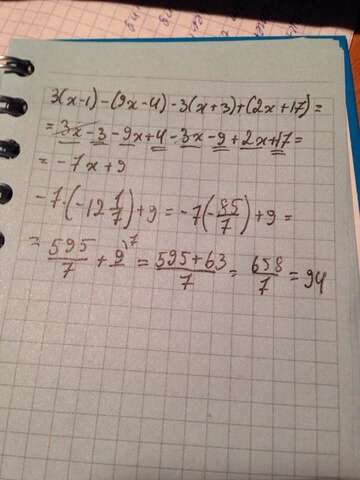 3(x-1)-(9x-4)-3(x+3)+(2x+17)=
=3x-3-9x+4-3x-9+2x+17=
=-7x+9
-7·(-12 1/7)+9=-7(-85/7)+9=
=595/7+9/ \7=595+63/7=658/7=94